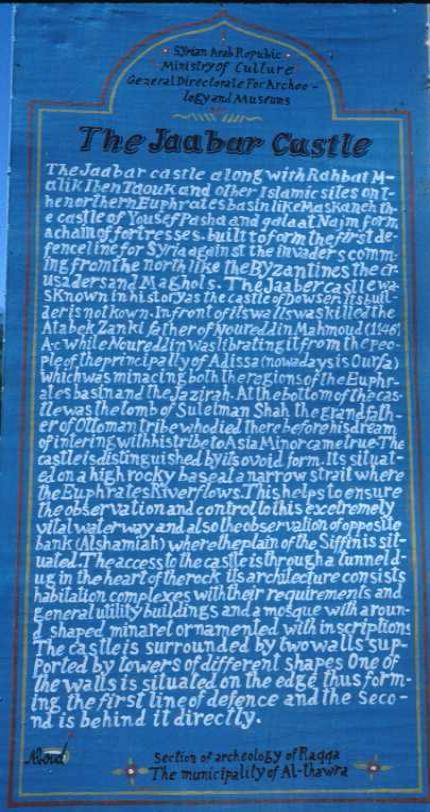 Syrian Arab Repubic
Ministry of Culture
General Directorate For Archeo-
logy and Museums
The Jaabar Castle
The Jaabar castle along with Rahbat M-
alik Iben Taouk and other Islamic sites on t-
he northern Euphrates basin like Maskanch th-
e castle of Yousef Pasha and qalaat Najm form
a chain of fortresses. built to form the first de-
fence line for Syria against the invaders comm-
ing from the north like the BYzantines the cr-
usaders and Maghols. The Jaaber castle wa-
s Known in history as the castle of Dowser. its buil-
der is not kown. In front of its walls was killed the
Atabek Zanki father of Noureddin Mahmoud (1146)
A.c While Noureddin was librating it from the peo-
ple of the principally of Adissa (nowadays is Ourfa)
which was minacing both the regions of the Euphr-
ates basin and the Jazirah. At the bottom of the cas-
tle was the tomb of Suleiman Shah the grand fath-
er of Ottoman tribe who died there before his dream
of intering with his tribe to Asia Minor came true. The
castle is distinguished by its ovoid form. Its situat-
ed on a high rocky base at a narrow strait where
the Euphrates River flows. This helps to ensure
the observation and control to this excetremely
vital waterway and also the observation of opposite
bank (Alshamiah) where the plain of the Siffin is sit-
uated. The access to the castle is through a tunnel d-
ug in the heart of the rock its architecture consists
habitation complexes with their requirements and
general utility buildings and a mosque with a roun-
d shaped minaret ornamented with inscriptions
The castle is surrounded by two walls sup-
ported by towers of different shapes One of
the walls is situated on the edge thus form-
ing the first line of defence and the seco-
nd is behind it directly.
Section of archeology of Raqqa
The municipality of Al-thawra